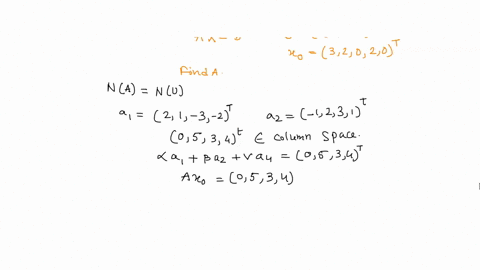 x₀ = (3,2,0,2,0)ᵀ
Find A.
N(A) = N(U)
a₁ = (2,1,-3,-2)ᵀ a₂ = (-1,2,3,1)ᵗ
(0,5,3,4)ᵗ ∈ column space.
αa₁ + βa₂ + γa₄ = (0,5,3,4)ᵀ
Ax₀ = (0,5,3,4)